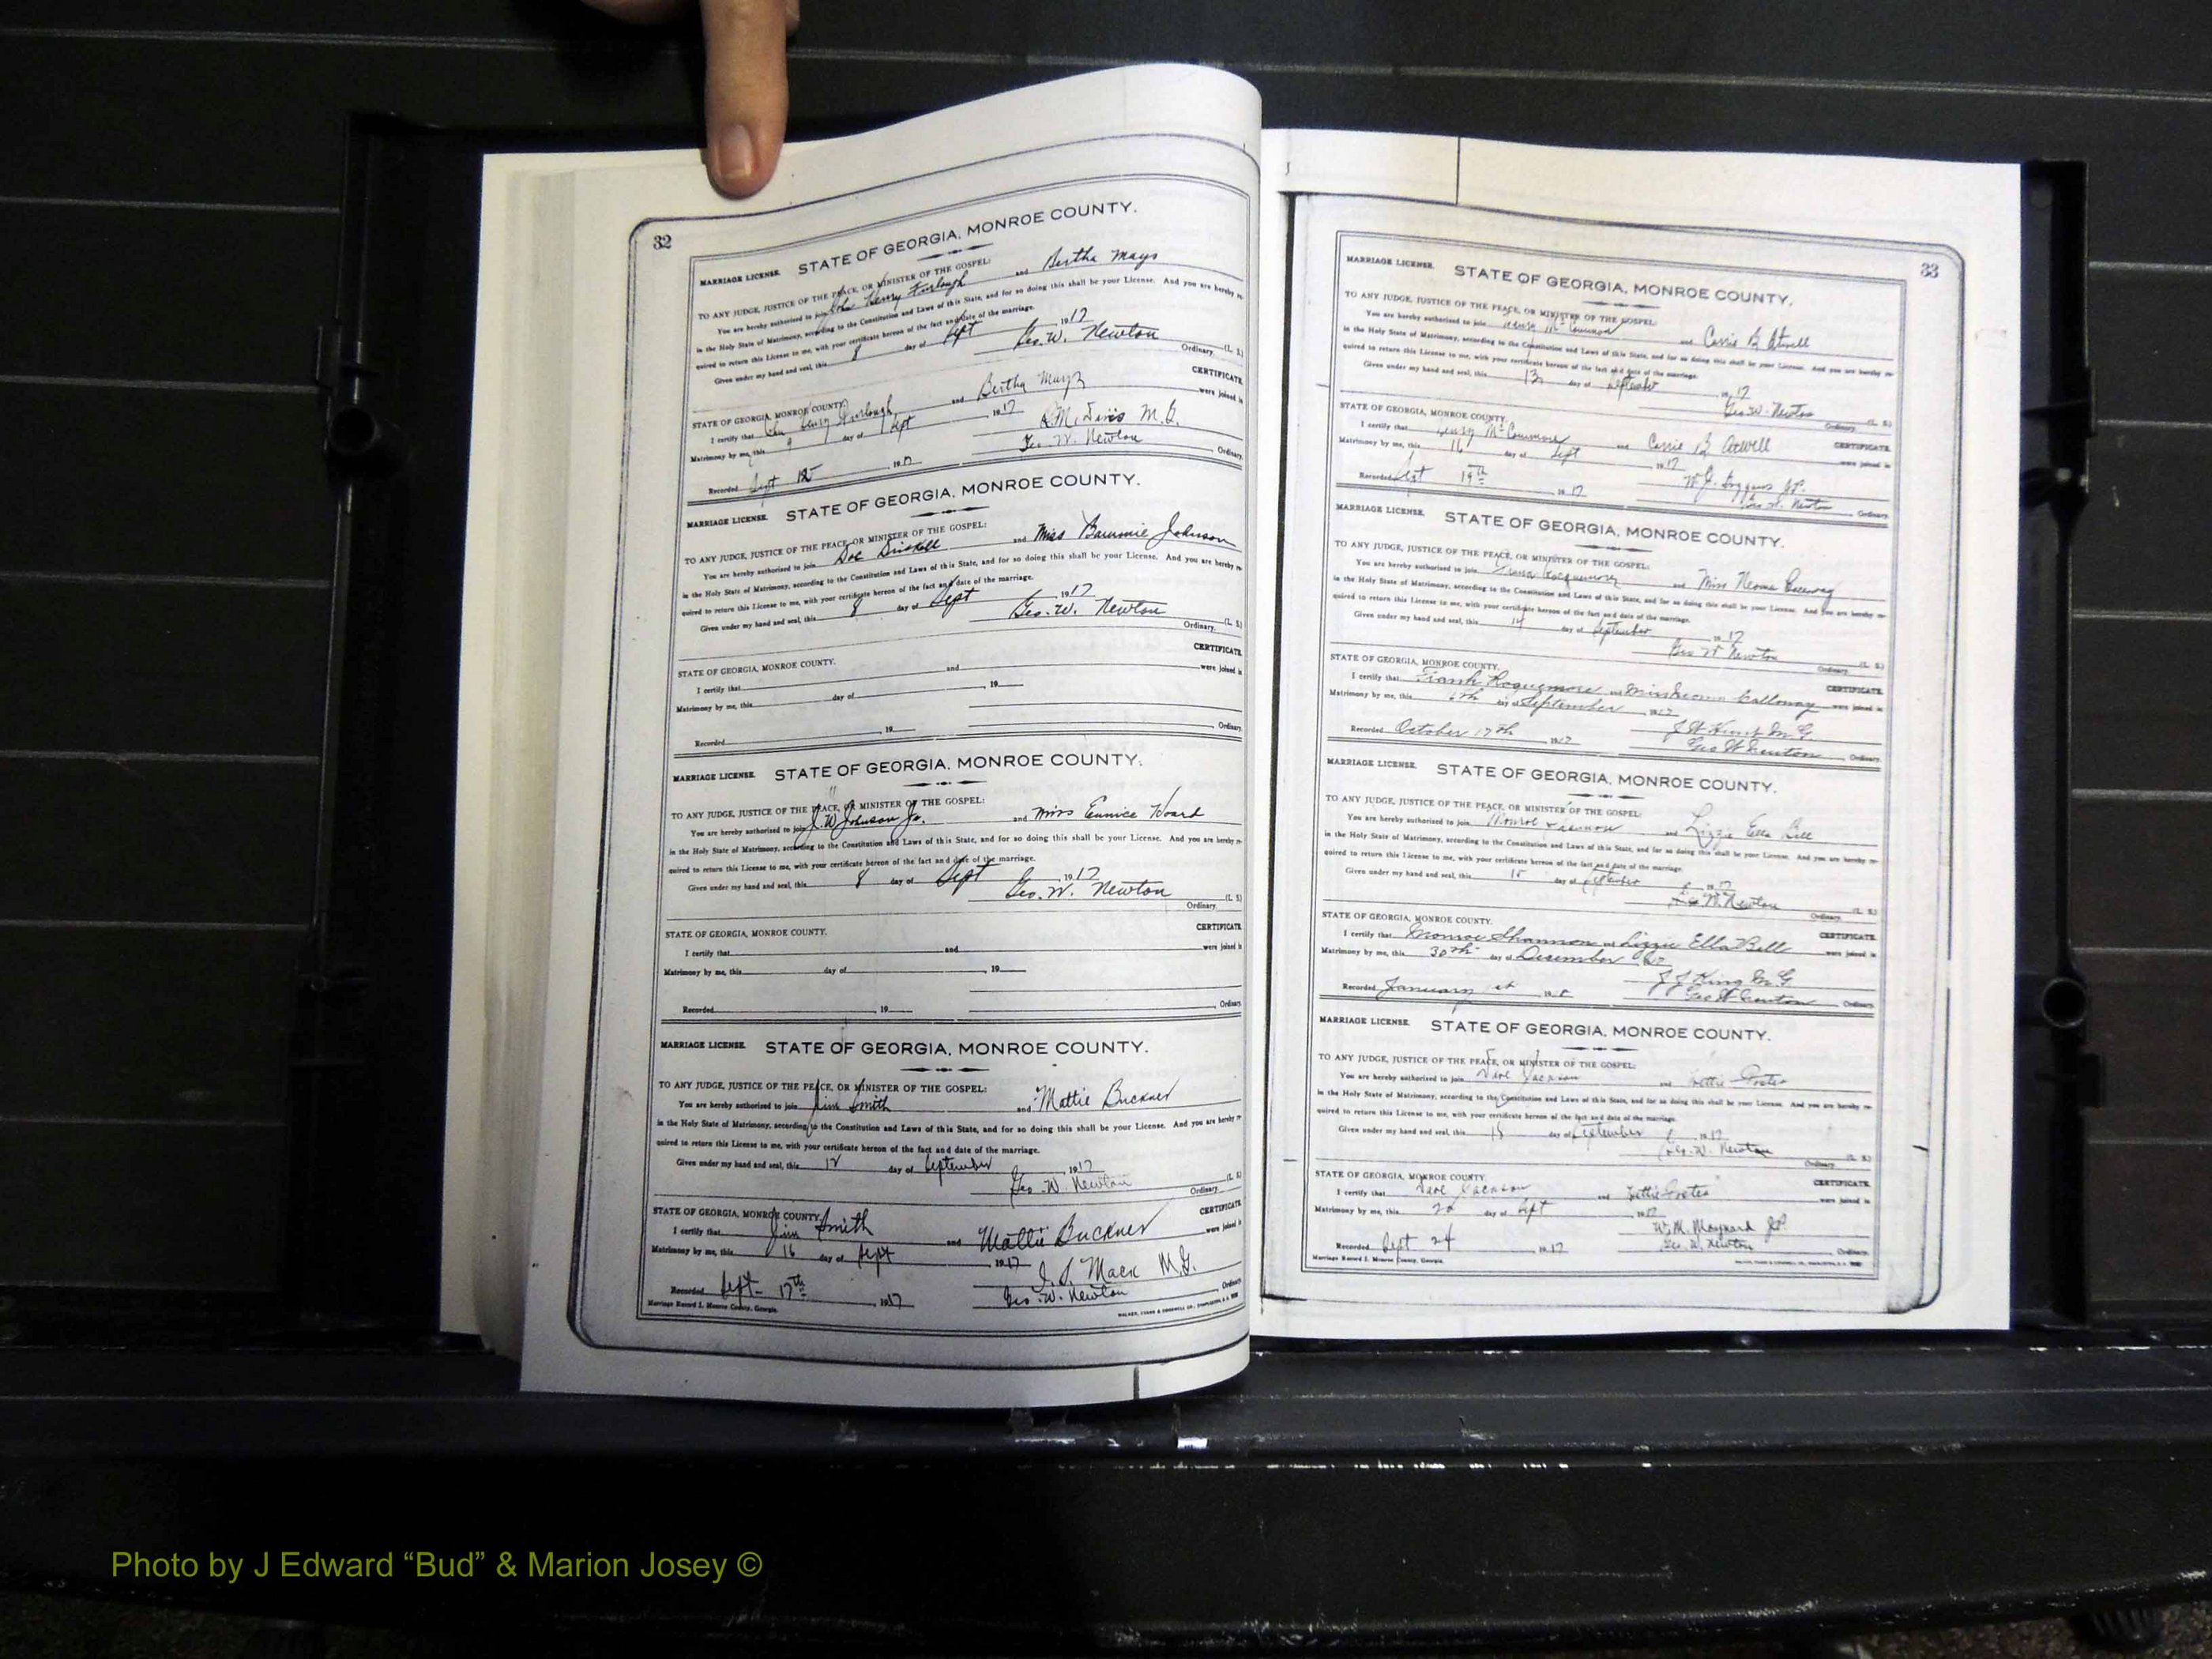 32
MARRIAGE LICENSE. STATE OF GEORGIA, MONROE COUNTY.
TO ANY JUDGE, JUSTICE OF THE PEACE, OR MINISTER OF THE GOSPEL:
You are hereby authorised to join John Henry Furlough and Bertha Mays
in the Holy State of Matrimony, according to the Constitution and Laws of this State, and for so doing this shall be your License. And you are hereby re-
quired to return this License to me, with your certificate hereon of the fact and date of the marriage.
Given under my hand and seal, this 8 day of Sept 1917
Geo. W. Newton (L. S.)
Ordinary.
STATE OF GEORGIA, MONROE COUNTY. CERTIFICATE.
I certify that John Henry Furlough and Bertha Mays were joined in
Matrimony by me, this 9 day of Sept 1917
Davis M. G.
Recorded Sept 12 1917 Geo. W. Newton Ordinary.
MARRIAGE LICENSE. STATE OF GEORGIA, MONROE COUNTY.
TO ANY JUDGE, JUSTICE OF THE PEACE, OR MINISTER OF THE GOSPEL:
You are hereby authorised to join Doc Driskell and Miss Bammie Johnson
in the Holy State of Matrimony, according to the Constitution and Laws of this State, and for so doing this shall be your License. And you are hereby re-
quired to return this License to me, with your certificate hereon of the fact and date of the marriage.
Given under my hand and seal, this 8 day of Sept 1917
Geo. W. Newton (L. S.)
Ordinary.
STATE OF GEORGIA, MONROE COUNTY. CERTIFICATE.
I certify that and were joined in
Matrimony by me, this day of , 19
Recorded 19 Ordinary.
MARRIAGE LICENSE. STATE OF GEORGIA, MONROE COUNTY.
TO ANY JUDGE, JUSTICE OF THE PEACE, OR MINISTER OF THE GOSPEL:
You are hereby authorised to join J. W. Johnson Jr. and Miss Eunice Hoard
in the Holy State of Matrimony, according to the Constitution and Laws of this State, and for so doing this shall be your License. And you are hereby re-
quired to return this License to me, with your certificate hereon of the fact and date of the marriage.
Given under my hand and seal, this 8 day of Sept 1917
Geo. W. Newton (L. S.)
Ordinary.
STATE OF GEORGIA, MONROE COUNTY. CERTIFICATE.
I certify that and were joined in
Matrimony by me, this day of , 19
Recorded 19 Ordinary.
MARRIAGE LICENSE. STATE OF GEORGIA, MONROE COUNTY.
TO ANY JUDGE, JUSTICE OF THE PEACE, OR MINISTER OF THE GOSPEL:
You are hereby authorised to join Jim Smith and Mattie Buckner
in the Holy State of Matrimony, according to the Constitution and Laws of this State, and for so doing this shall be your License. And you are hereby re-
quired to return this License to me, with your certificate hereon of the fact and date of the marriage.
Given under my hand and seal, this 12 day of September 1917
Geo. W. Newton (L. S.)
Ordinary.
STATE OF GEORGIA, MONROE COUNTY. CERTIFICATE.
I certify that Jim Smith and Mattie Buckner were joined in
Matrimony by me, this 16 day of Sept 1917
I. S. Mack M.G.
Recorded Sept- 17th 1917 Geo. W. Newton Ordinary.
Marriage Record I. Monroe County, Georgia.
33
MARRIAGE LICENSE. STATE OF GEORGIA, MONROE COUNTY.
TO ANY JUDGE, JUSTICE OF THE PEACE, OR MINISTER OF THE GOSPEL:
You are hereby authorised to join Henry McCommon and Carrie B Atwell
in the Holy State of Matrimony, according to the Constitution and Laws of this State, and for so doing this shall be your License. And you are hereby re-
quired to return this License to me, with your certificate hereon of the fact and date of the marriage.
Given under my hand and seal, this 13 day of September 1917
Geo. W. Newton (L. S.)
Ordinary.
STATE OF GEORGIA, MONROE COUNTY. CERTIFICATE.
I certify that Henry McCommon and Carrie B Atwell were joined in
Matrimony by me, this 16 day of Sept 1917
W. J. JP.
Recorded Sept 19th 1917 Geo. W. Newton Ordinary.
MARRIAGE LICENSE. STATE OF GEORGIA, MONROE COUNTY.
TO ANY JUDGE, JUSTICE OF THE PEACE, OR MINISTER OF THE GOSPEL:
You are hereby authorised to join Frank Roquemore and Miss Neoma
in the Holy State of Matrimony, according to the Constitution and Laws of this State, and for so doing this shall be your License. And you are hereby re-
quired to return this License to me, with your certificate hereon of the fact and date of the marriage.
Given under my hand and seal, this 14 day of September 1917
Geo W Newton (L. S.)
Ordinary.
STATE OF GEORGIA, MONROE COUNTY. CERTIFICATE.
I certify that Frank Roquemore and Miss Neoma Calloway were joined in
Matrimony by me, this day of September 1917
J W Hunt M G.
Recorded October 17th 1917 Geo W Newton Ordinary.
MARRIAGE LICENSE. STATE OF GEORGIA, MONROE COUNTY.
TO ANY JUDGE, JUSTICE OF THE PEACE, OR MINISTER OF THE GOSPEL:
You are hereby authorised to join Monroe Shannon and Lizzie Ella Bell
in the Holy State of Matrimony, according to the Constitution and Laws of this State, and for so doing this shall be your License. And you are hereby re-
quired to return this License to me, with your certificate hereon of the fact and date of the marriage.
Given under my hand and seal, this 15 day of September 1917
Geo W. Newton (L. S.)
Ordinary.
STATE OF GEORGIA, MONROE COUNTY. CERTIFICATE.
I certify that Monroe Shannon and Lizzie Ella Bell were joined in
Matrimony by me, this 30th day of December 1917
J J King M G
Recorded January 1918 Geo W Newton Ordinary.
MARRIAGE LICENSE. STATE OF GEORGIA, MONROE COUNTY.
TO ANY JUDGE, JUSTICE OF THE PEACE, OR MINISTER OF THE GOSPEL:
You are hereby authorised to join Jackson and Foster
in the Holy State of Matrimony, according to the Constitution and Laws of this State, and for so doing this shall be your License. And you are hereby re-
quired to return this License to me, with your certificate hereon of the fact and date of the marriage.
Given under my hand and seal, this 15 day of September 1917
Geo. W. Newton (L. S.)
Ordinary.
STATE OF GEORGIA, MONROE COUNTY. CERTIFICATE.
I certify that Jackson and Foster were joined in
Matrimony by me, this day of Sept 1917
W. M. Maynard JP
Recorded Sept 24 1917 Geo. W. Newton Ordinary.
Marriage Record I. Monroe County, Georgia.
Photo by J Edward “Bud” & Marion Josey ©